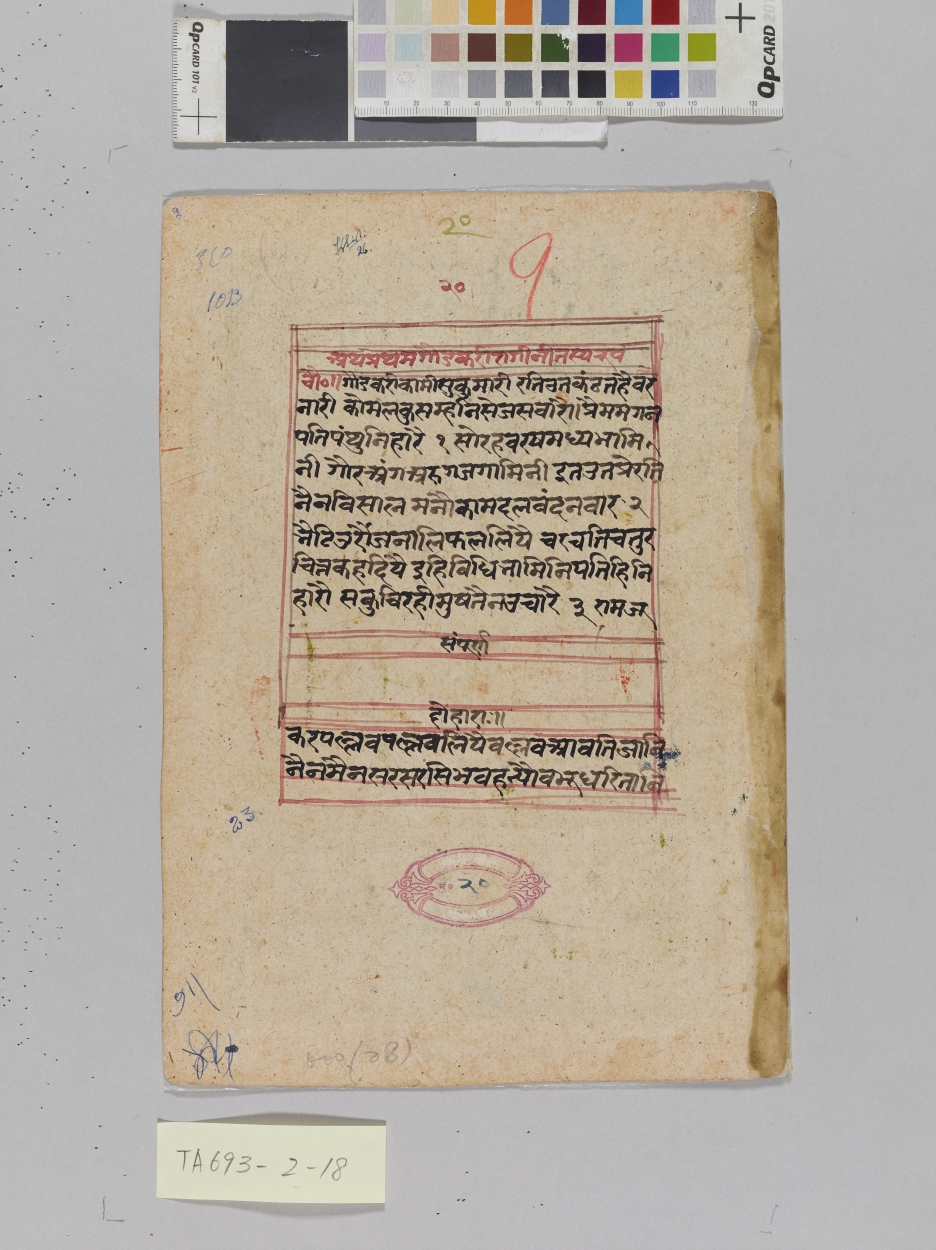 QPCARD 101 v2
QPCARD 201
10 20 30 40 50 60 70 80 90 100 110 130
२०
२०
अथप्रथमगौडकरीरागीनीतस्यरूपं
चौ०॥गौडकरीकामीसुकुमारी रतिवृतकंदतहैवरे
नारी कोमलकुसमहनिसेजसवांरी॥प्रेममगन
पतिपंथुनिहारै १ सोरहवरषमध्यभामि
नी गौरअंगअरुगजगामिनी इतउतप्रेरति
नैनविसाल मनौकामदलवंदनवार २
भेटिउरोजनालिफललियै चरचतिचतुर
चित्रकहदियै इहिविधिनामिनिपतिहिनि
हारौ सकुचिरहीमुषतैनउचारै ३ रामज
संपूर्ण
दोहारा॥
करपल्लवपल्लवलियैवल्लवआवतिजानि
नैनमैनसरसरसिभवहन्यौवभरुधरितानि
२०
TA693-2-18